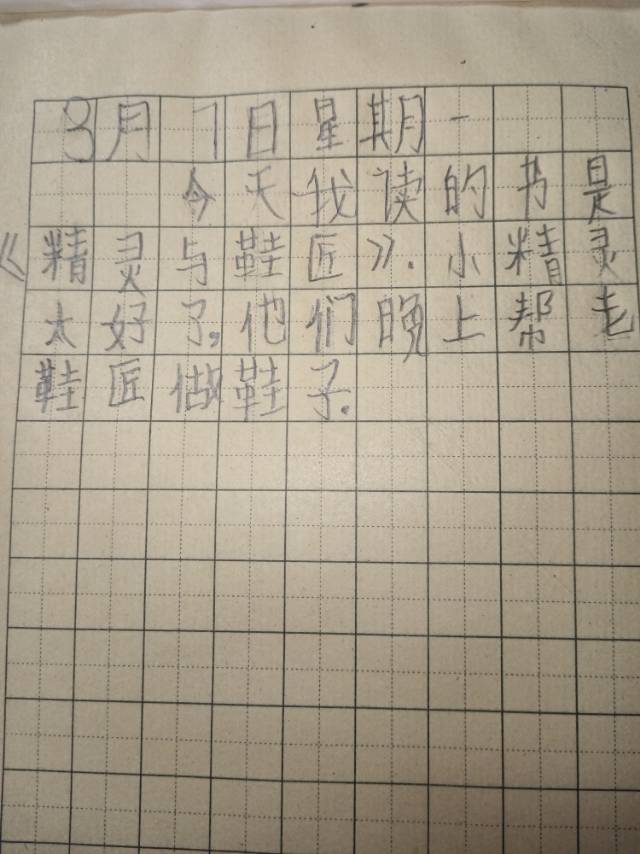 3月1日星期一
今天我读的书是
《精灵与鞋匠》.小精灵
太好了,他们晚上帮老
鞋匠做鞋子.